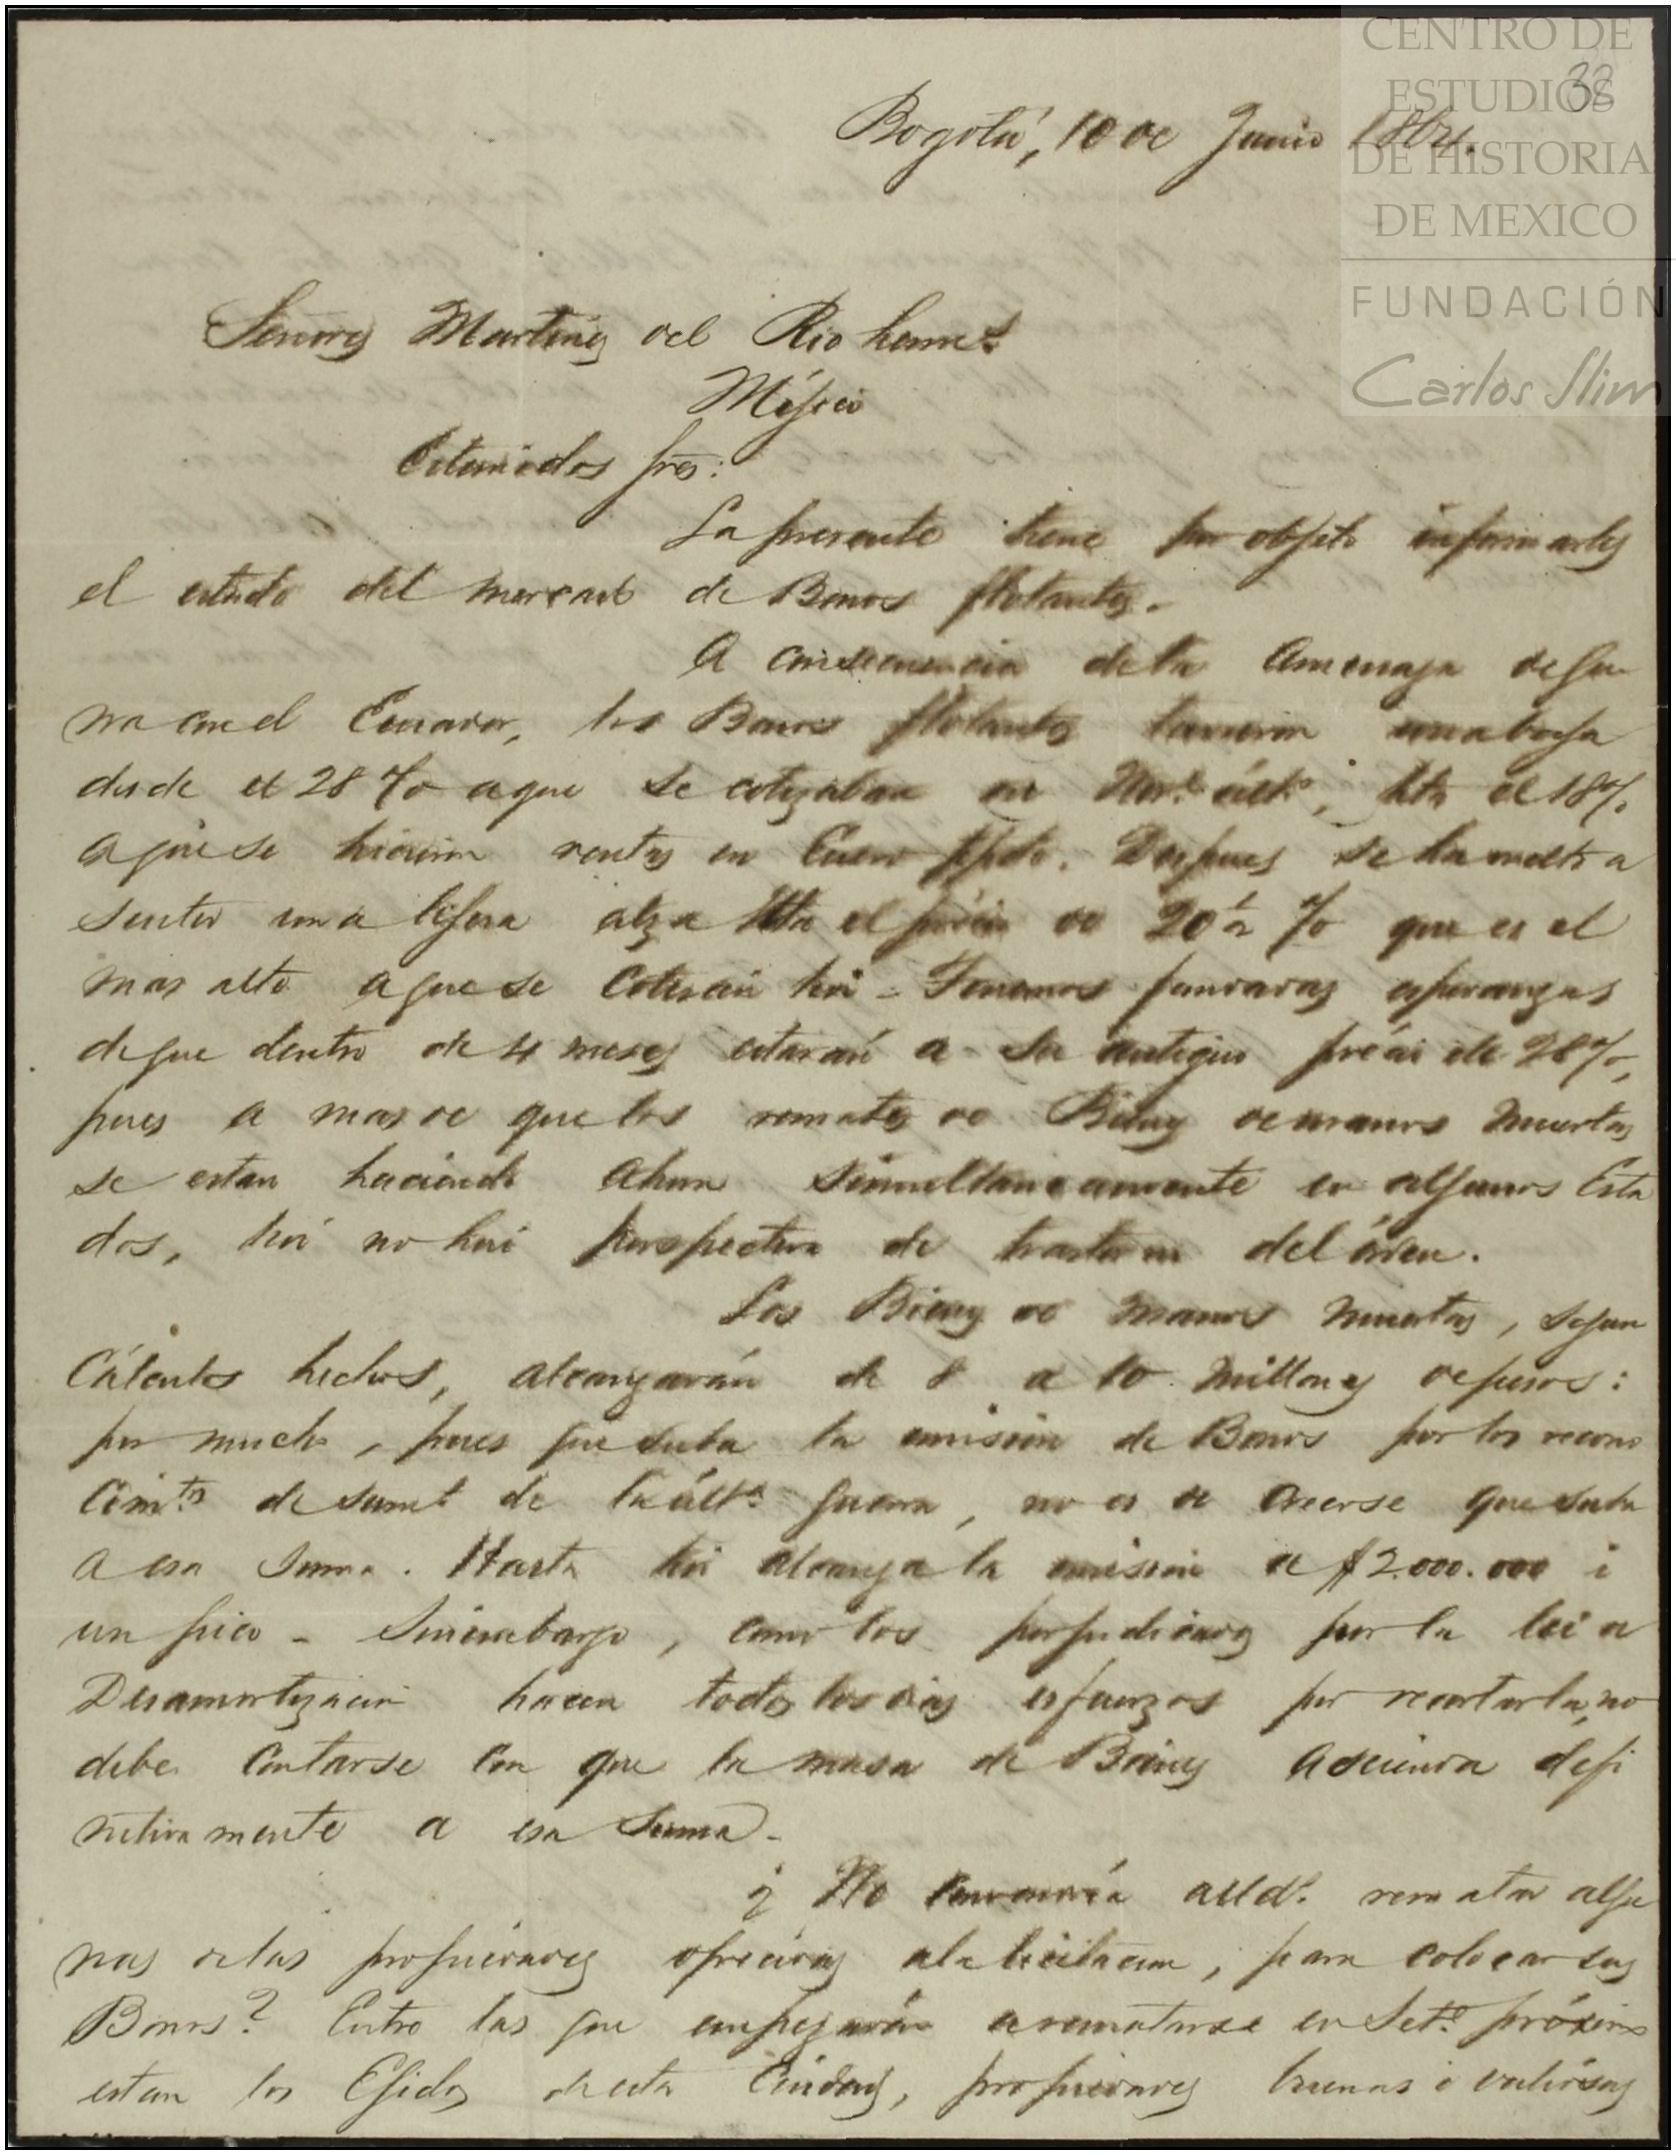 CENTRO DE
ESTUDIOS
DE HISTORIA
DE MEXICO
FUNDACIÓN
Carlos Slim
32
Bogotá, 10 de Junio 1864.
Señores Martinez del Rio herms.
Méjico
Estimados Sres:
La presente tiene por objeto informarles
el estado del mercado de Bonos flotantes.
A consecuencia de la amenaza de gue
rra con el Ecuador, los Bonos flotantes tuvieron una baja
desde el 28 % a que se cotizaban en últo, hta el 18%
a que se hicieron ventas en Enero ppdo. Despues se ha vuelto a
sentir una lijera alza hta el précio de 20 1/2 % que es el
mas alto a que se cotizan hoi - Tenemos fundadas esperanzas
de que dentro de 4 meses estarán a su antiguo précio de 28%,
pues a mas de que los remates de Bienes de manos muertas
se estan haciendo ahora simultaneamente en algunos Esta
dos, hoi no hai perspectiva de trastorno del órden.
Los Bienes de manos muertas, segun
Cálculos hechos, alcanzarán de 8 a 10 millones de pesos:
por mucho, pues que suba la emision de Bonos por los recono
cimtos de sumto de la últa guerra, no es de creerse que suba
a esa suma. Hasta hoi alcanza la emision a $2.000.000 i
un pico - Sinembargo, como los perjudicados por la lei de
Desamortizacion hacen todos los dias esfuerzos por recortarla, no
debe contarse con que la masa de Bienes ascienda defi
nitivamente a esa suma.
¿ No convendría a Uds. rematar algu
nas de las propiedades ofrecidas a la licitacion, para colocar sus
Bonos? Entre las que empezarán a rematarse en Sete próximo
estan los Ejidos de esta Ciudad, propiedades buenas i valiosas